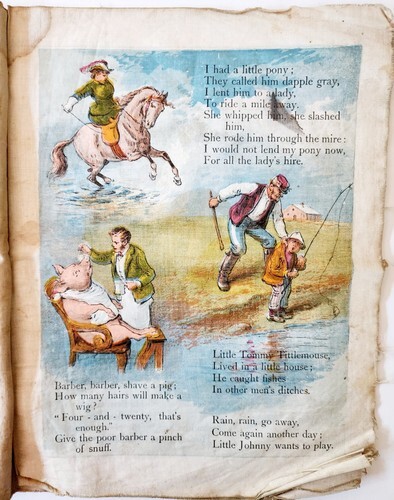 I had a little pony;
They called him dapple gray,
I lent him to a lady,
To ride a mile away.
She whipped him, she slashed
him,
She rode him through the mire:
I would not lend my pony now,
For all the lady's hire.
Barber, barber, shave a pig;
How many hairs will make a
wig?
"Four-and-twenty, that's
enough."
Give the poor barber a pinch
of snuff.
Little Tommy Tittlemouse,
Lived in a little house;
He caught fishes
In other men's ditches.
Rain, rain, go away,
Come again another day;
Little Johnny wants to play.